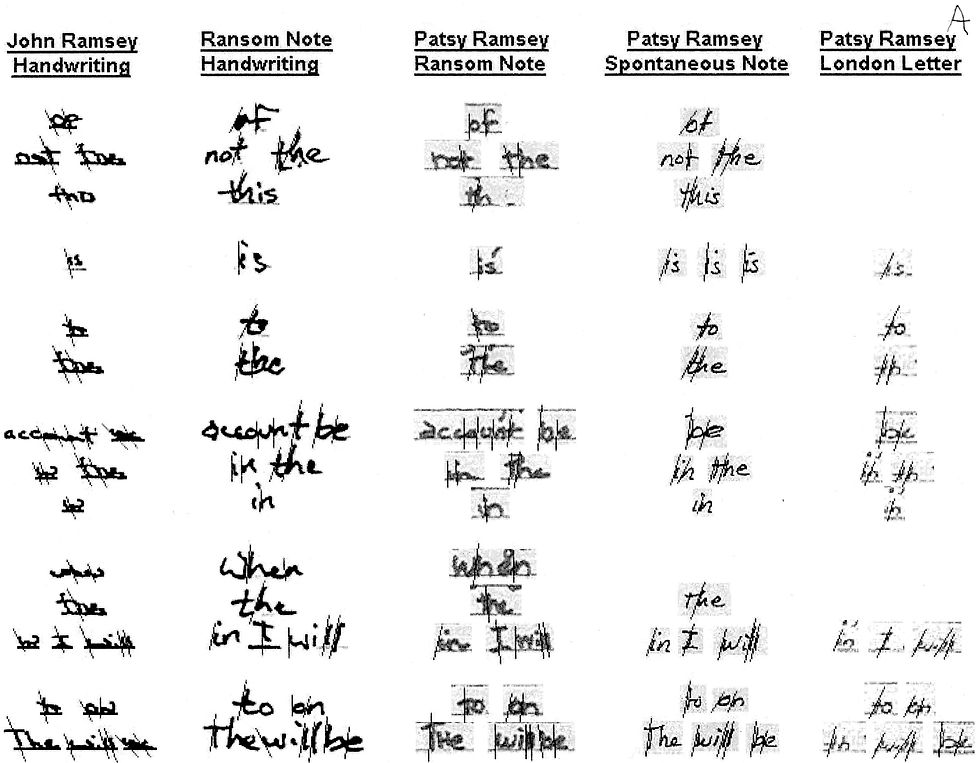 A
John Ramsey Handwriting Ransom Note Handwriting Patsy Ramsey Ransom Note Patsy Ramsey Spontaneous Note Patsy Ramsey London Letter
of of of of
not the not the not the not the
this th this
is is is is is is is
to to to to to
the the The the th
account account be account be be be
in the in the in the in the in th
in in in in in
when when when
the the the the
in I will in I will in I will in I will in I will
to on to on to on to on to on
The will be The will be The will be The will be in will be